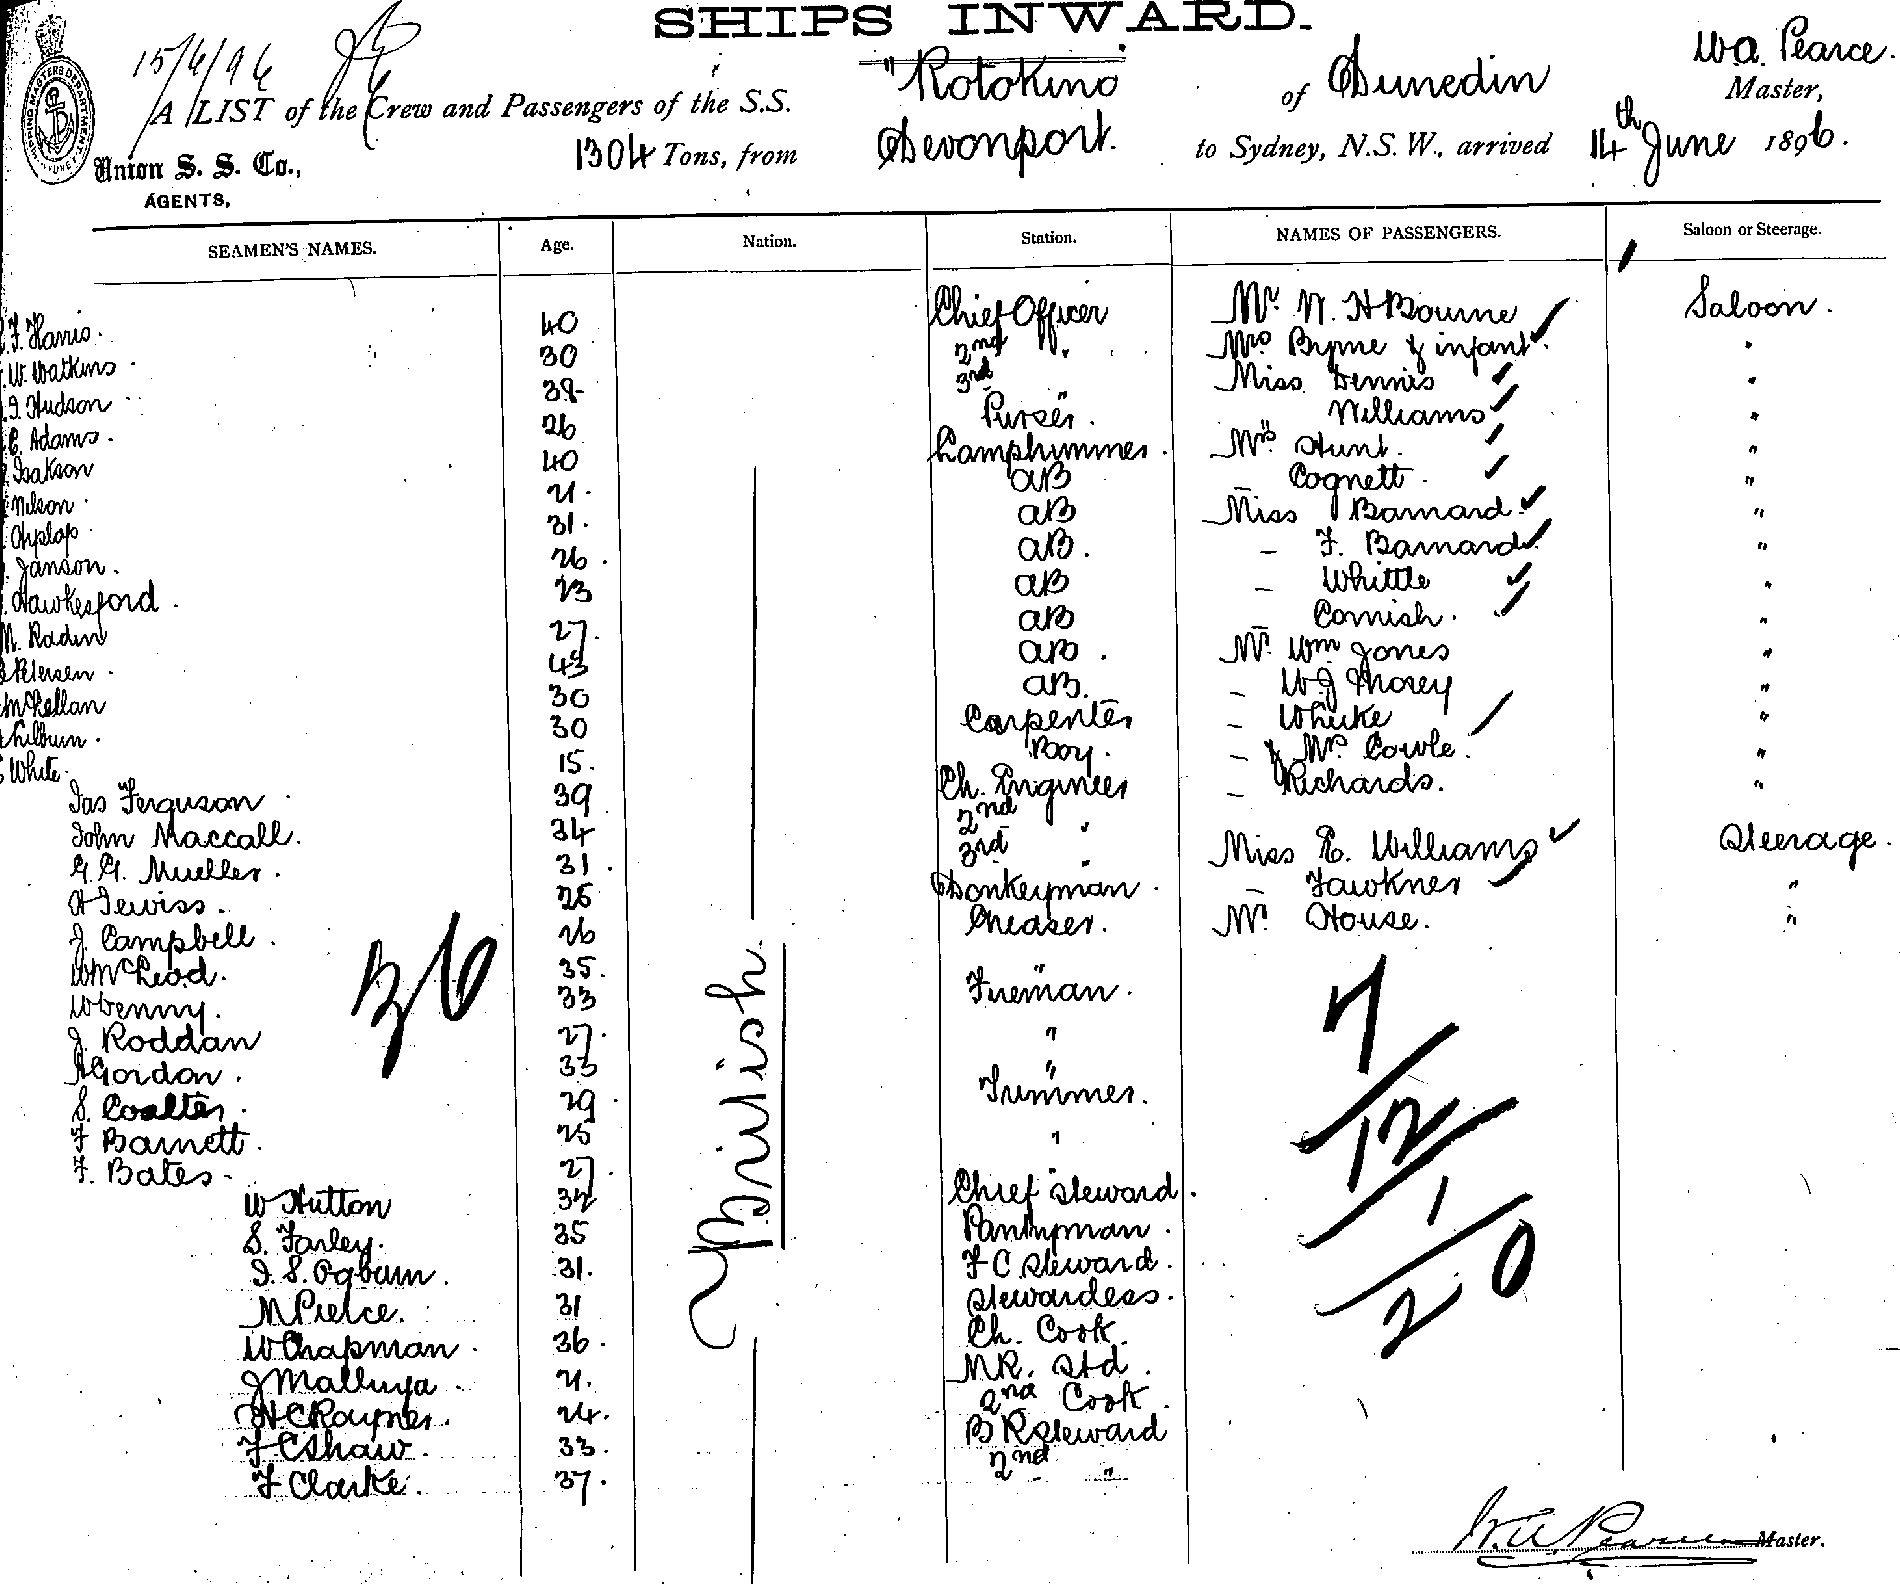 SHIPS INWARD.
15/6/96
A LIST of the Crew and Passengers of the S.S. "Rotokino of Dunedin Wa. Pearce. Master,
Union S. S. Co., AGENTS, 1304 Tons, from Devonport. to Sydney, N.S.W., arrived 14th June 1896.
SEAMEN'S NAMES. Age. Nation. Station. NAMES OF PASSENGERS. Saloon or Steerage.
F. Harris. 40 Chief Officer Mr. N. H Bourne Saloon.
W. Watkins 30 2nd " Mrs Byrne & infant "
Hudson 38 3rd Miss Dennis "
C. Adams. 26 Purser. Williams "
Isakson 40 Lamptrimmer. Mrs Hunt. "
Nilson 21. AB Cognett "
31. AB Miss Barnard "
Janson. 26. AB. - F. Barnard "
Hawkesford. 23 AB - Whittle "
M. Radin 27. AB - Cornish. "
Petersen 43 AB. Mr. Wm Jones "
McLellan 30 AB. - W J Mosey "
30 Carpenter - "
White 15. Boy. - & Mrs Cowle. "
Jas Ferguson 39 Ch. Engineer - Richards. "
John Maccall. 34 2nd " Miss E. Williams Steerage.
G. G. Mueller. 31. 3rd " - Fawkner "
25 Donkeyman. Mr. House. "
J. Campbell. 26 Greaser.
W McLeod. 35. "
33 Fireman.
J. Roddan 27. "
A Gordon. 33 "
S. Coalter. 29. Trimmer.
F Barnett. 25 "
F. Bates 27. "
W Hutton 32 Chief Steward.
S. Farley. 35 Pantryman.
S. Ogburn. 31. F C Steward.
M Pierce. 31 Stewardess.
W Chapman. 36. Ch. Cook.
J Malluya 21. M R. Std.
H C Rayner. 24. 2nd Cook.
F C Shaw. 33. B R Steward
F Clarke. 37. 2nd "
British.
36
7
12
1
20
W. A. Pearce Master.